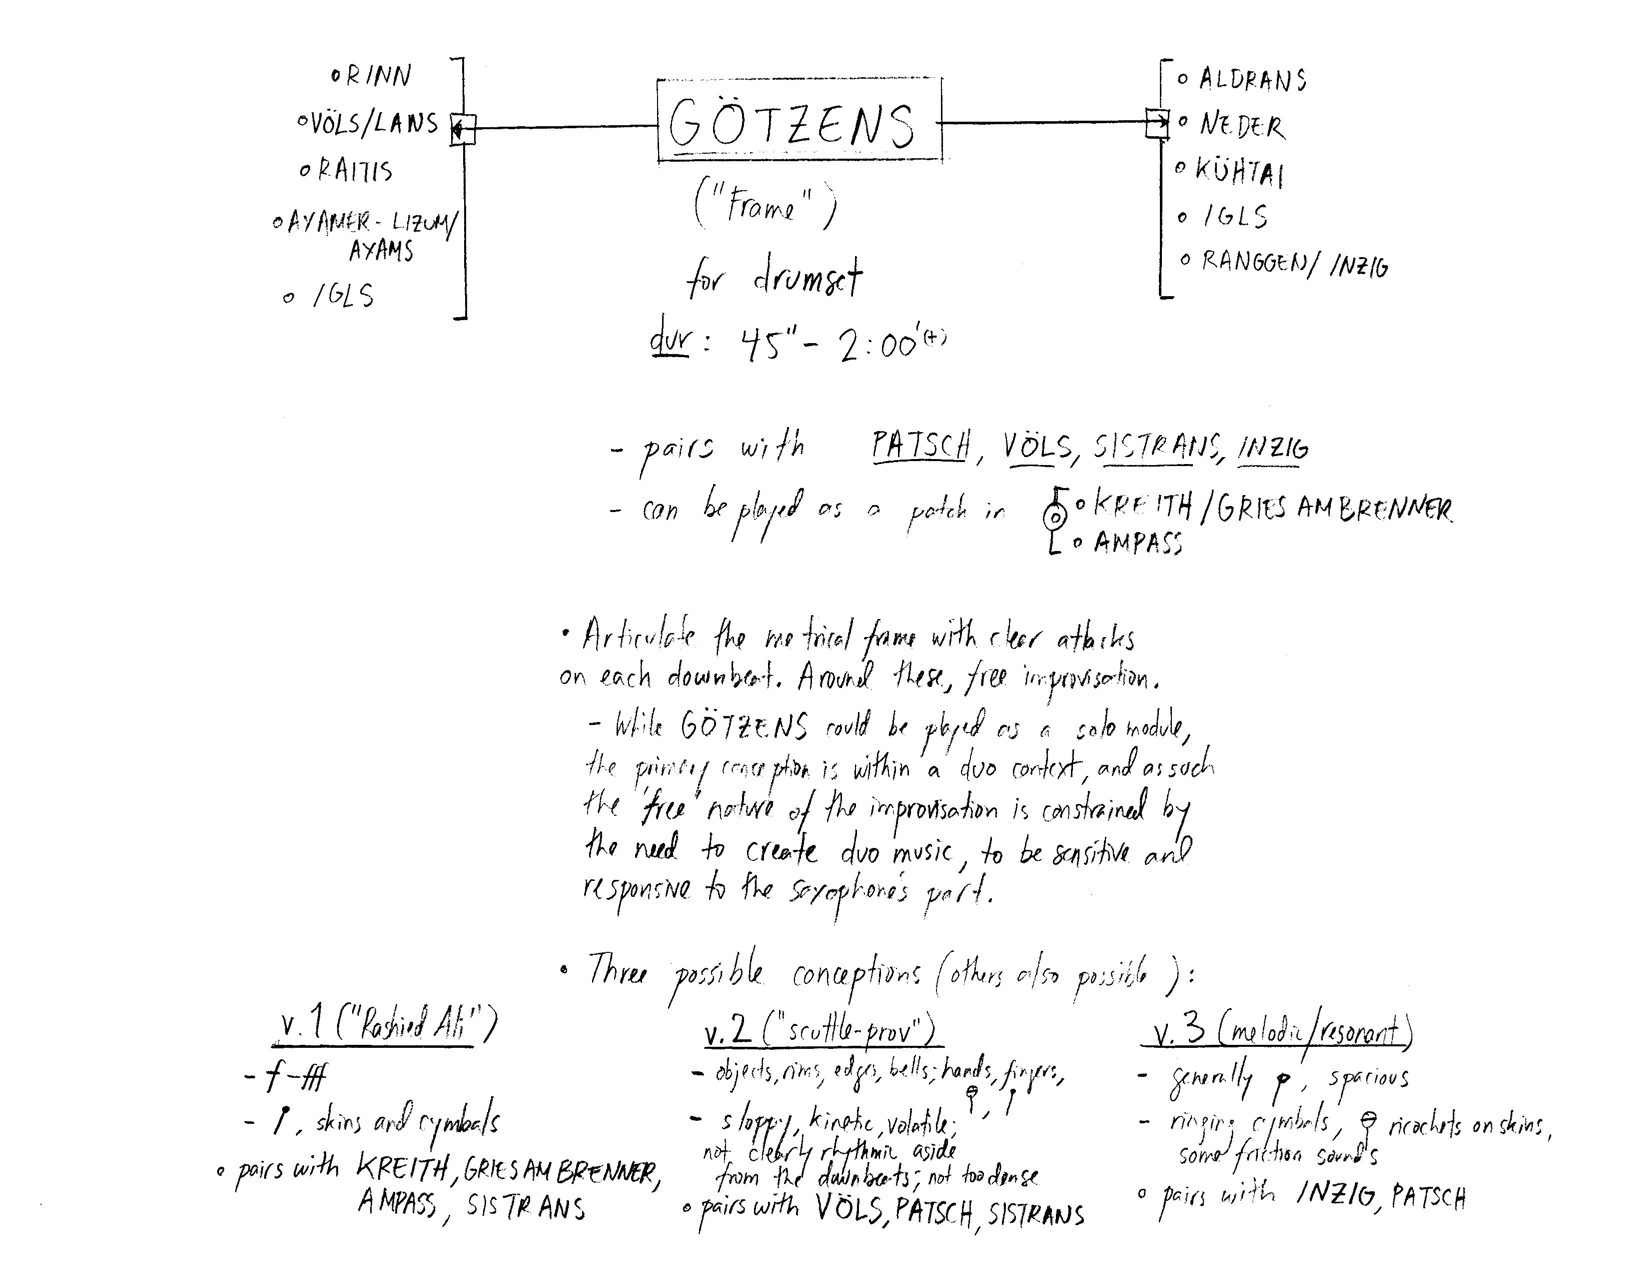 ○ RINN
○ VÖLS/LANS
○ RAITIS
○ AXAMER-LIZUM/
AXAMS
○ IGLS
GÖTZENS
("Frame")
for drumset
dur: 45" - 2:00'(+)
○ ALDRANS
○ NEDER
○ KÜHTAI
○ IGLS
○ RANGGEN/INZIG
- pairs with PATSCH, VÖLS, SISTRANS, INZIG
- can be played as a patch in ○ KREITH/GRIES AM BRENNER
○ AMPASS
• Articulate the metrical frame with clear attacks
on each downbeat. Around these, free improvisation.
- While GÖTZENS could be played as a solo module,
the primary conception is within a duo context, and as such
the 'free' nature of the improvisation is constrained by
the need to create duo music, to be sensitive and
responsive to the saxophone's part.
• Three possible conceptions (others also possible):
v.1 ("Rashied Ali")
- f-fff
- , skins and cymbals
○ pairs with KREITH, GRIES AM BRENNER,
AMPASS, SISTRANS
v.2 ("scuttle-prov")
- objects, rims, edges, bells; hands, fingers,
- sloppy, kinetic, volatile;
not clearly rhythmic aside
from the downbeats; not too dense
○ pairs with VÖLS, PATSCH, SISTRANS
v.3 (melodic/resonant)
- generally p, spacious
- ringing cymbals, ricochets on skins,
some friction sounds
○ pairs with INZIG, PATSCH